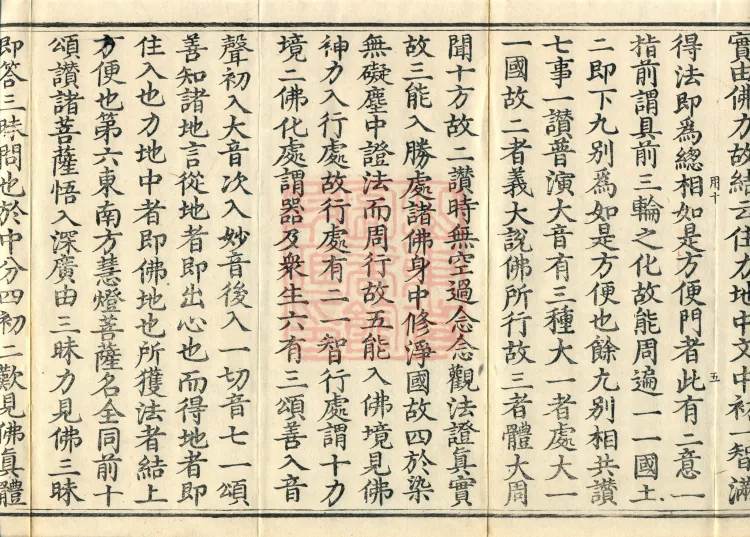 實由佛力故結云住力地中文中初一智滿
得法即爲總相如是方便門者此有二意一
用十
五
指前謂具前三輪之化故能周遍一一國土
二即下九別爲如是方便也餘九別相共讃
七事一讃普演大音有三種大一者處大一
一國故二者義大說佛所行故三者體大周
聞十方故二讃時無空過念念觀法證眞實
故三能入勝處諸佛身中修淨國故四於染
無礙塵中證法而周行故五能入佛境見佛
神力入行處故行處有二一智行處謂十力
境二佛化處謂器及衆生六有三頌善入音
聲初入大音次入妙音後入一切音七一頌
善知諸地言從地者即出心也而得地者即
住入也力地中者即佛地也所獲法者結上
方便也第六東南方慧燈菩薩名全同前十
頌讃諸菩薩悟入深廣由三昧力見佛三昧
即答三昧問也於中分四初二歎見佛眞體